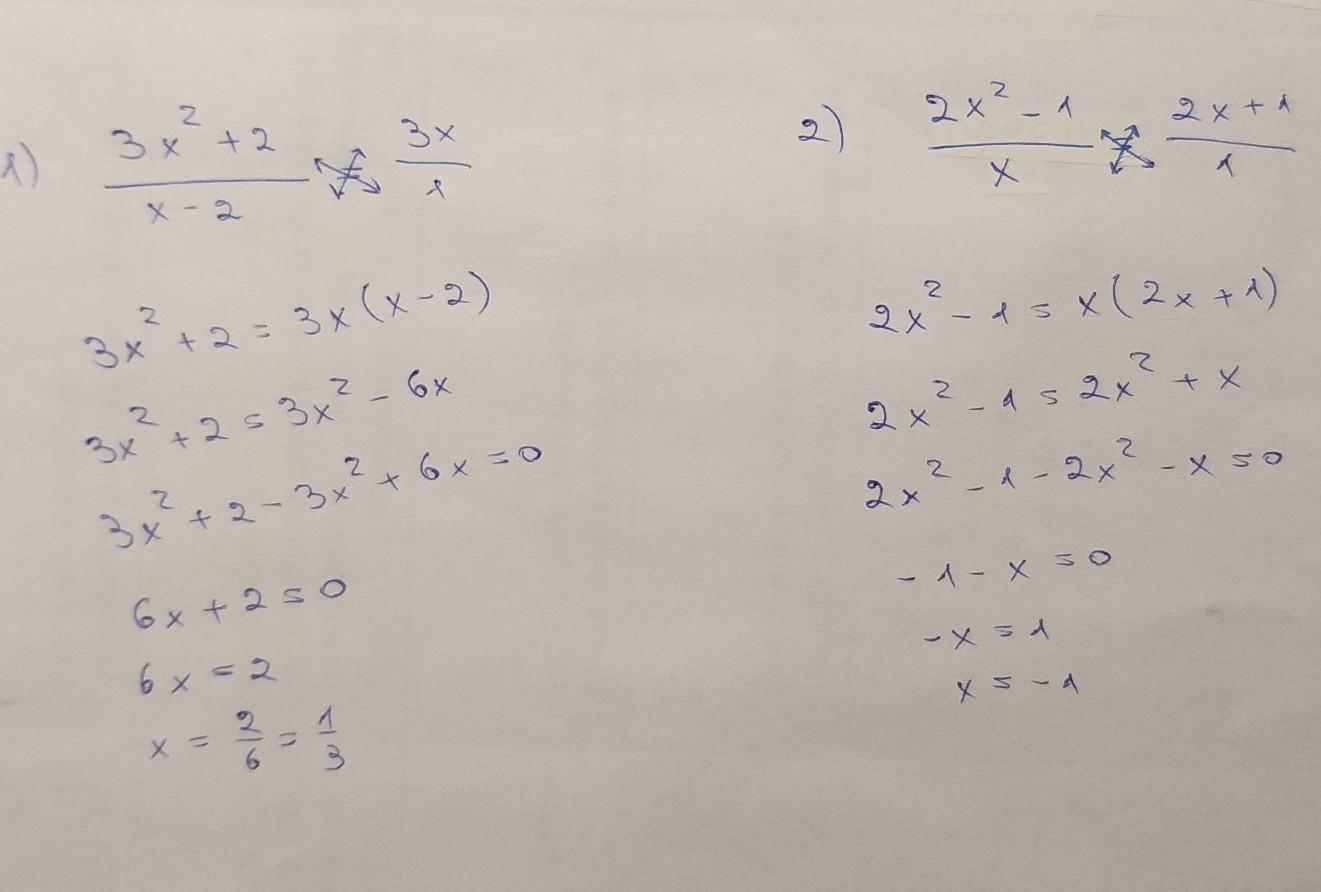 1) (3x² + 2)/(x - 2) = 3x/1
3x² + 2 = 3x(x - 2)
3x² + 2 = 3x² - 6x
3x² + 2 - 3x² + 6x = 0
6x + 2 = 0
6x = 2
x = 2/6 = 1/3
2) (2x² - 1)/x = (2x + 1)/1
2x² - 1 = x(2x + 1)
2x² - 1 = 2x² + x
2x² - 1 - 2x² - x = 0
- 1 - x = 0
-x = 1
x = -1